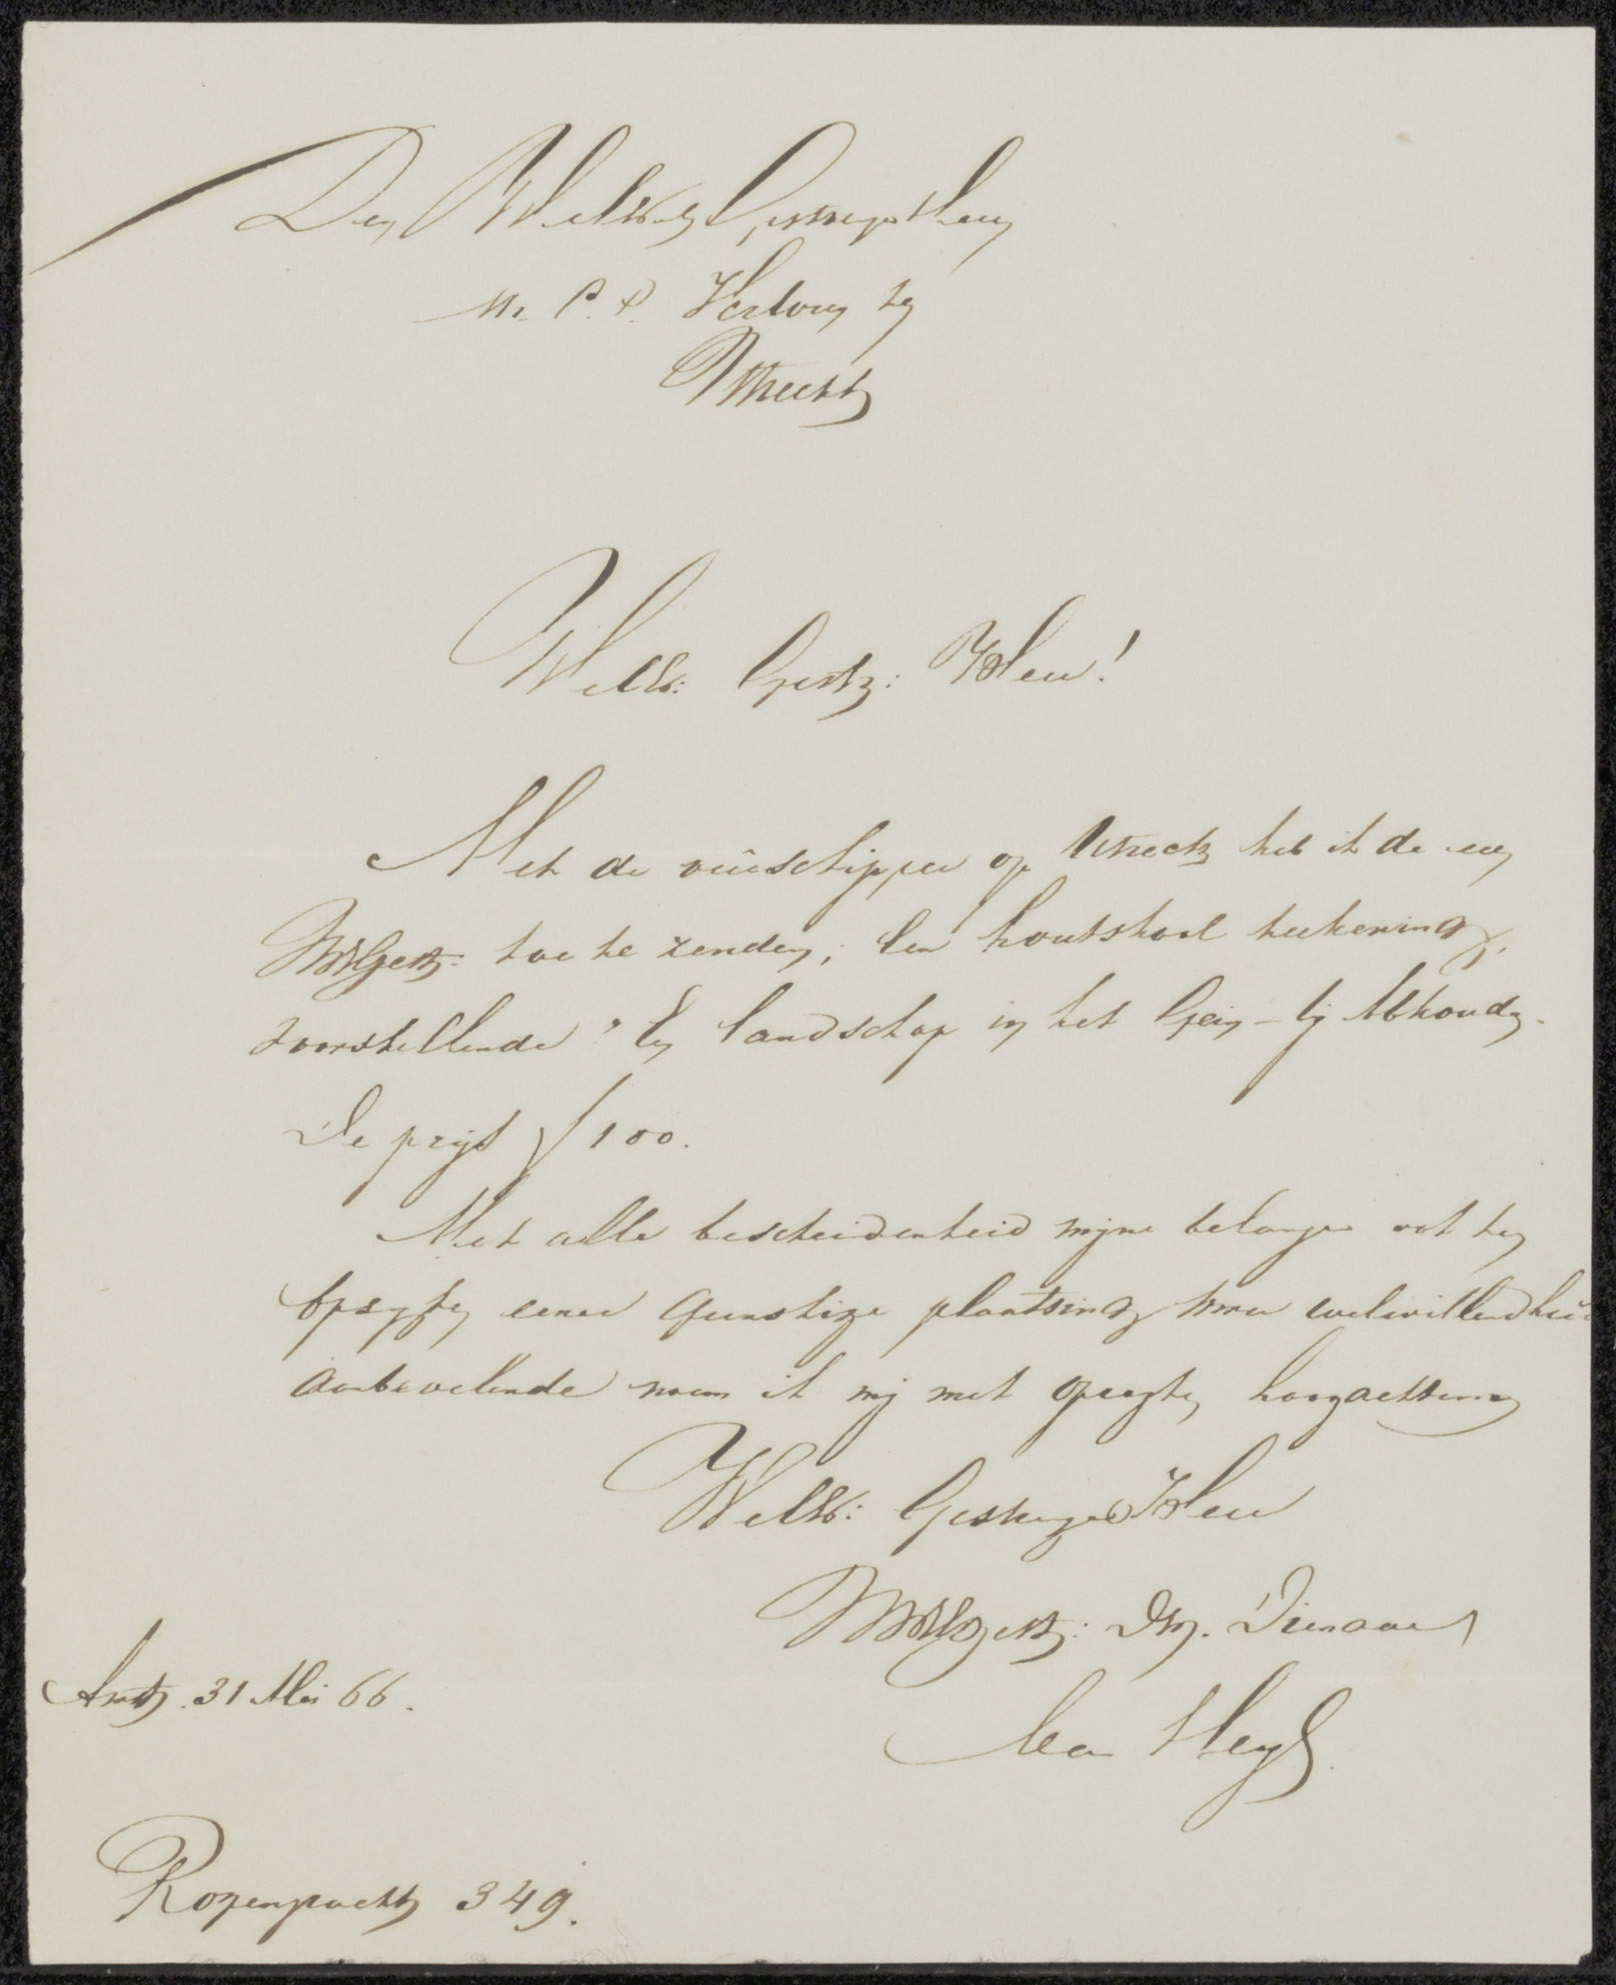 Den WelEd Gestrenge Heer
Mr P. V. Hertog te
Utrecht
WelEd: Gestr: Heer!
Met de veerschipper op Utrecht heb ik de eer
UwEdGestr: toe te zenden, een houtskool teekening,
voorstellende "Een landschap in het Gein - bij Abkoude.
De prijs f 100.
Met alle bescheidenheid mijne belangen ten
opzigte eener gunstige plaatsing uwer welwillendheid
aanbevelende noem ik mij met opregte hoogachting
WelEd: Gestrenge Heer
UwEdGestr: Dw. Dienaar
Amst. 31 Mei 66.
Rozengracht 349.